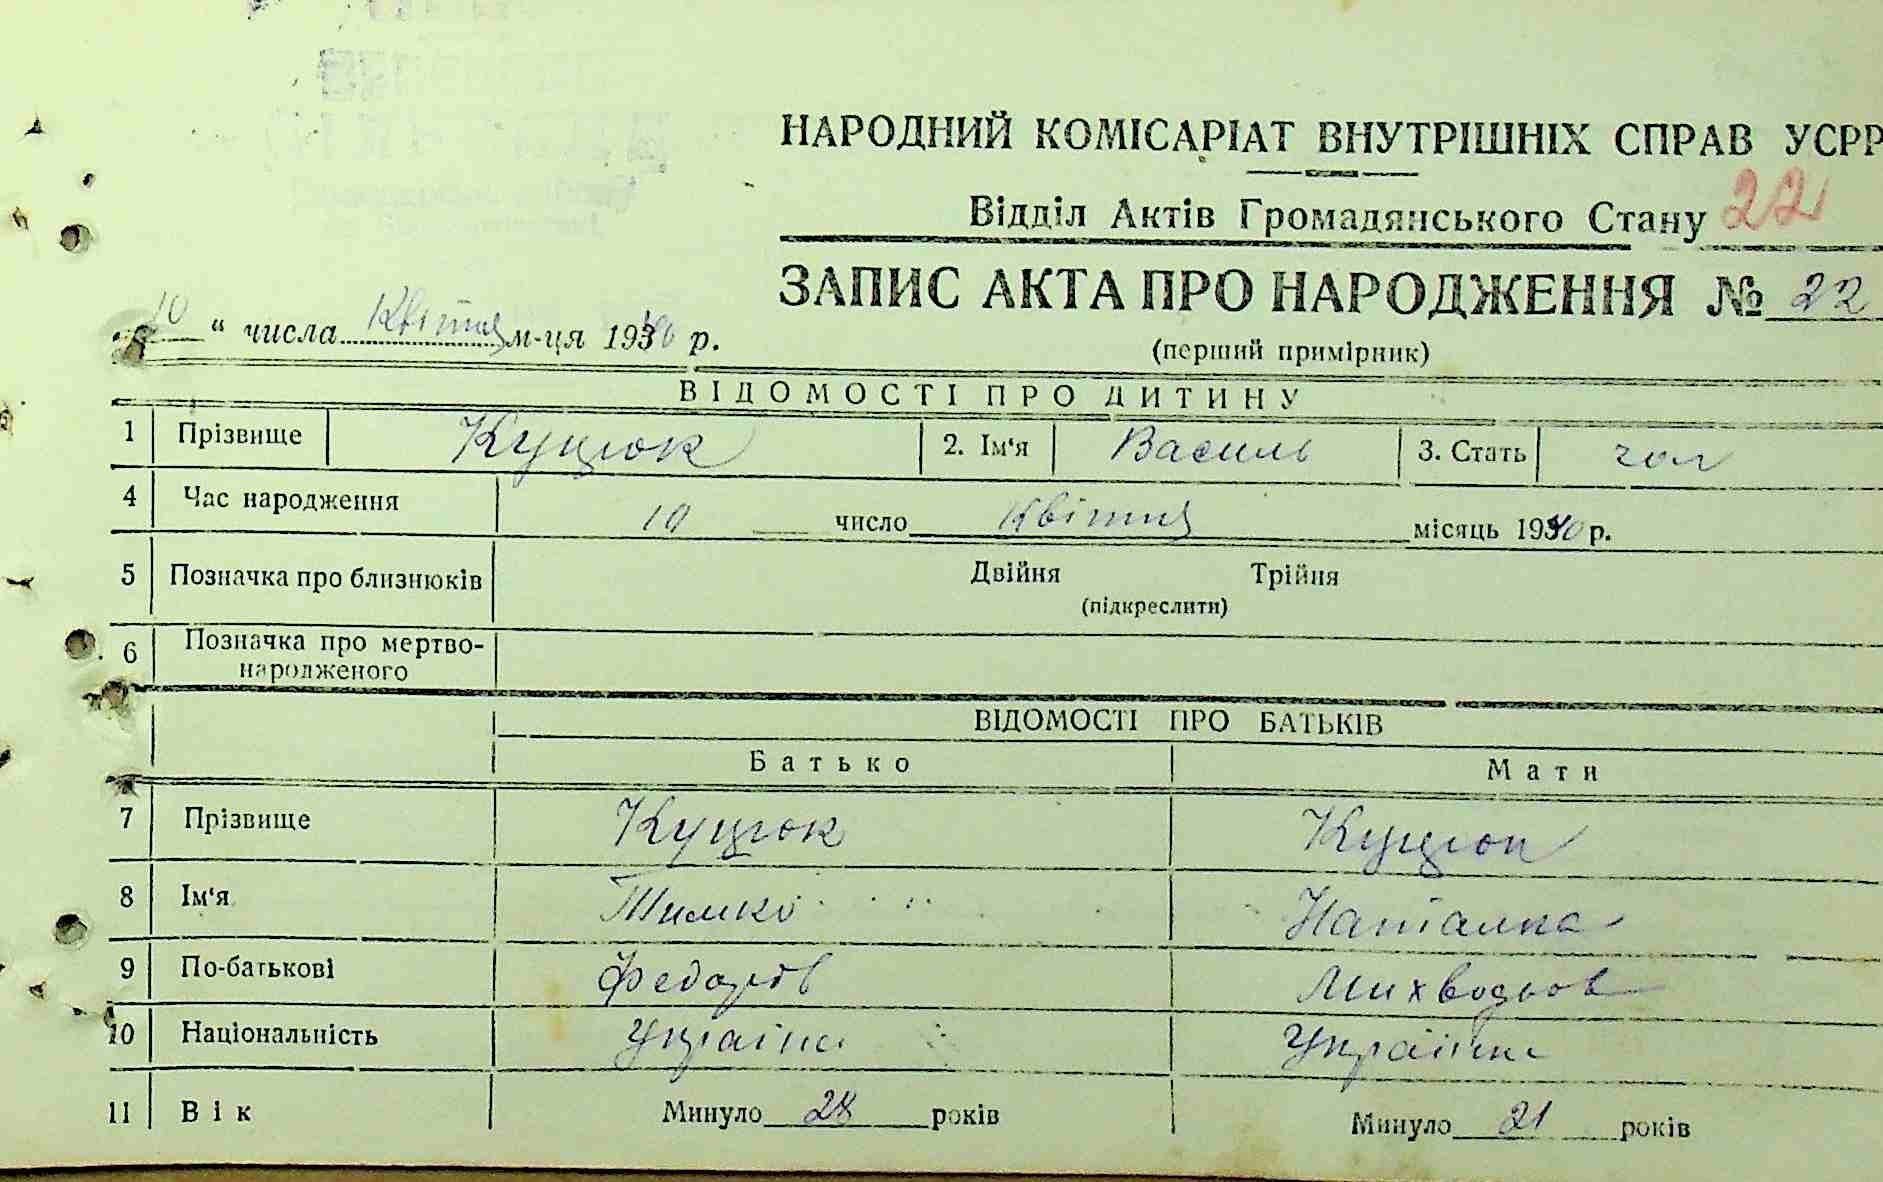 НАРОДНИЙ КОМІСАРІАТ ВНУТРІШНІХ СПРАВ УСРР
Відділ Актів Громадянського Стану 22
ЗАПИС АКТА ПРО НАРОДЖЕННЯ № 22
10 “ числа Квітня м-ця 1940 р.
(перший примірник)
ВІДОМОСТІ ПРО ДИТИНУ
1 Прізвище Куцюк 2. Ім'я Василь 3. Стать чол
4 Час народження 10 число Квітня місяць 1940 р.
5 Позначка про близнюків Двійня Трійня
(підкреслити)
6 Позначка про мертво-
народженого
ВІДОМОСТІ ПРО БАТЬКІВ
Батько Мати
7 Прізвище Куцюк Куцюк
8 Ім'я Тимко Наталка
9 По-батькові Федорів
10 Національність
11 Вік Минуло 28 років Минуло 21 років